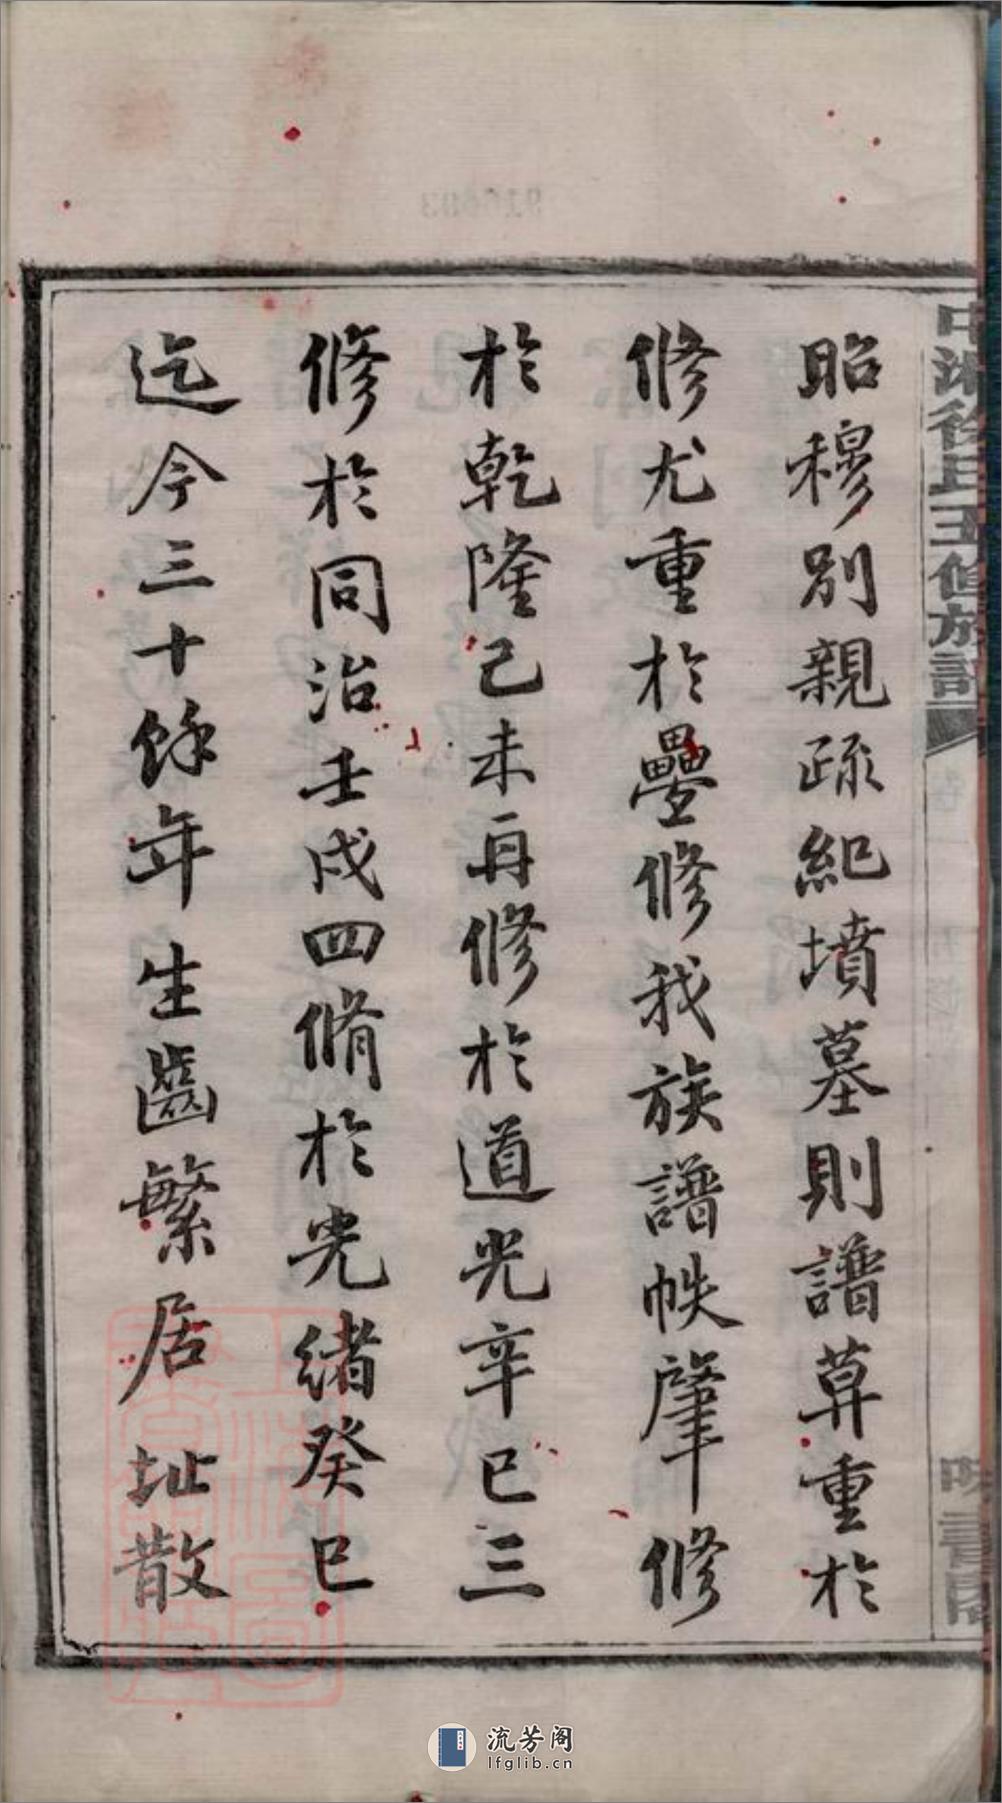 中湘徐氏五修族譜
昭穆別親疏紀墳墓則譜莫重於
修尤重於疊修我族譜帙肇修
於乾隆己未再修於道光辛巳三
修於同治壬戌四脩於光緒癸巳
迄今三十餘年生齒繁居址散
流芳阁
lfglib.cn